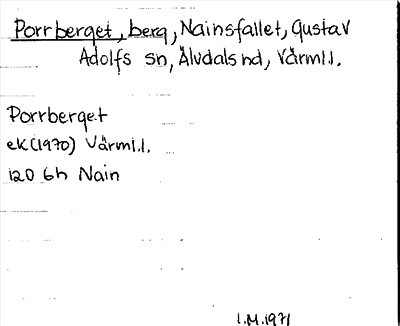 Porrberget, berg, Nainsfallet, Gustav
Adolfs sn, Älvdals hd, Värml.l.
Porrberget
ek(1970) Värml.l.
12D 6h Nain
I.M.1971